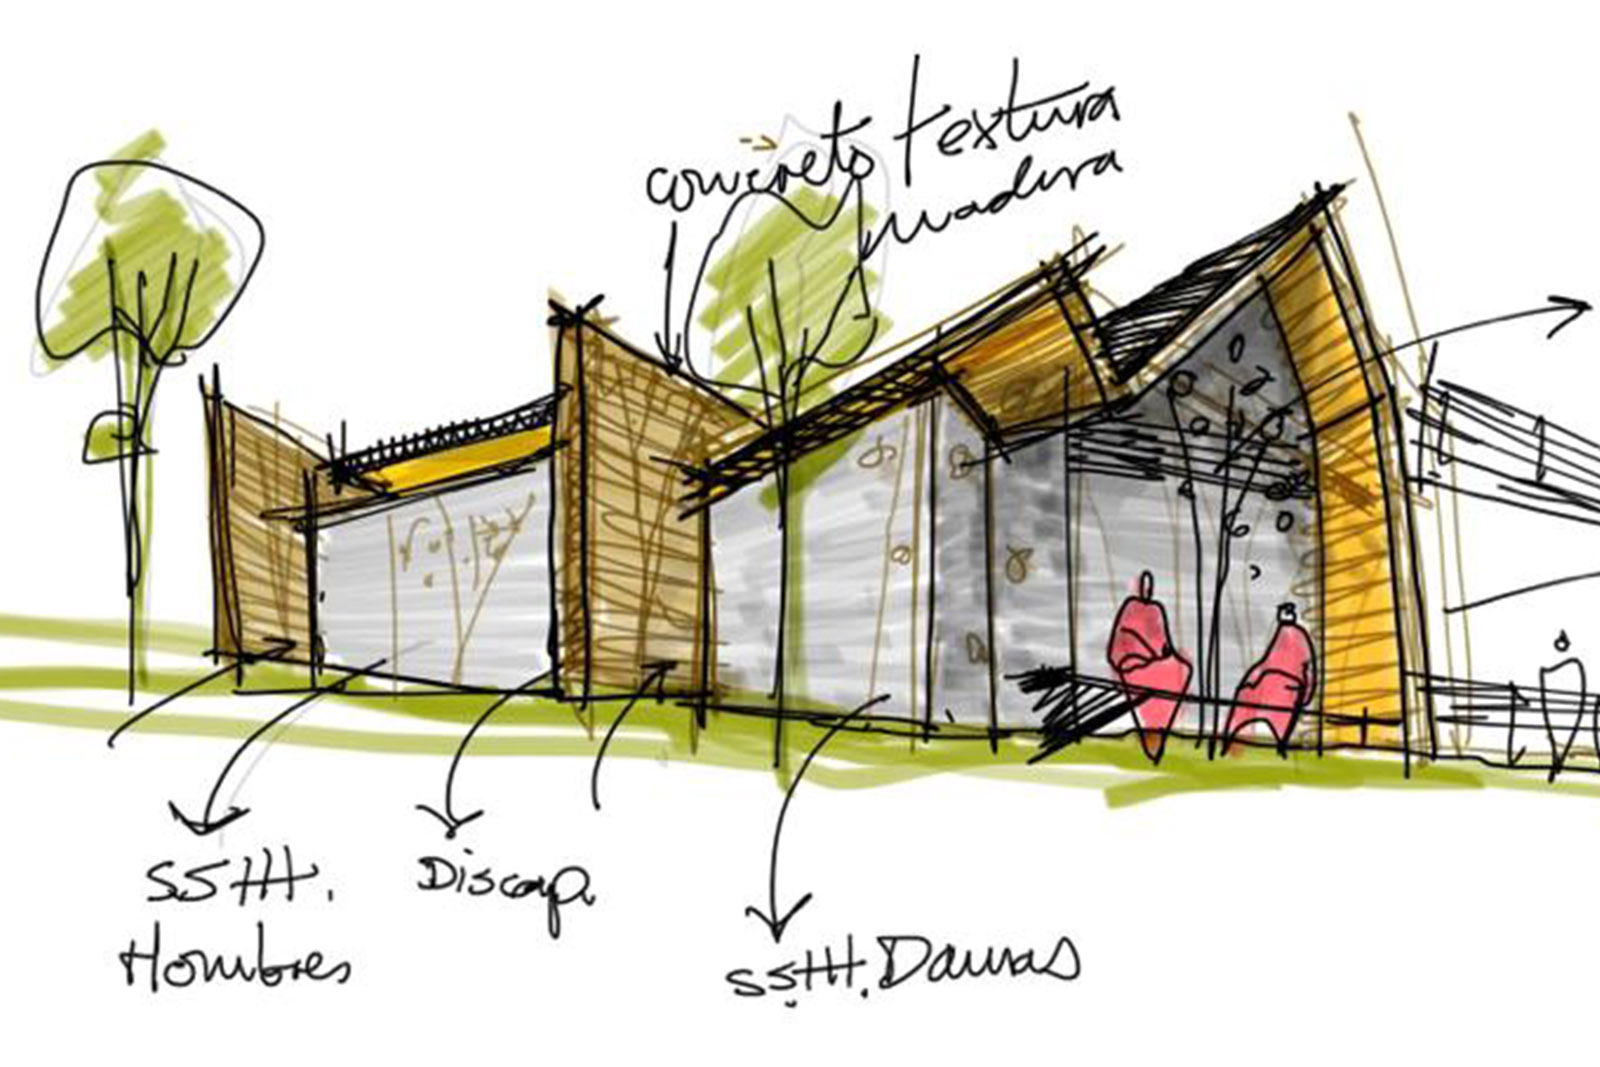 concreto textura
madera
SSHH.
Hombres
Discap.
SSHH. Damas